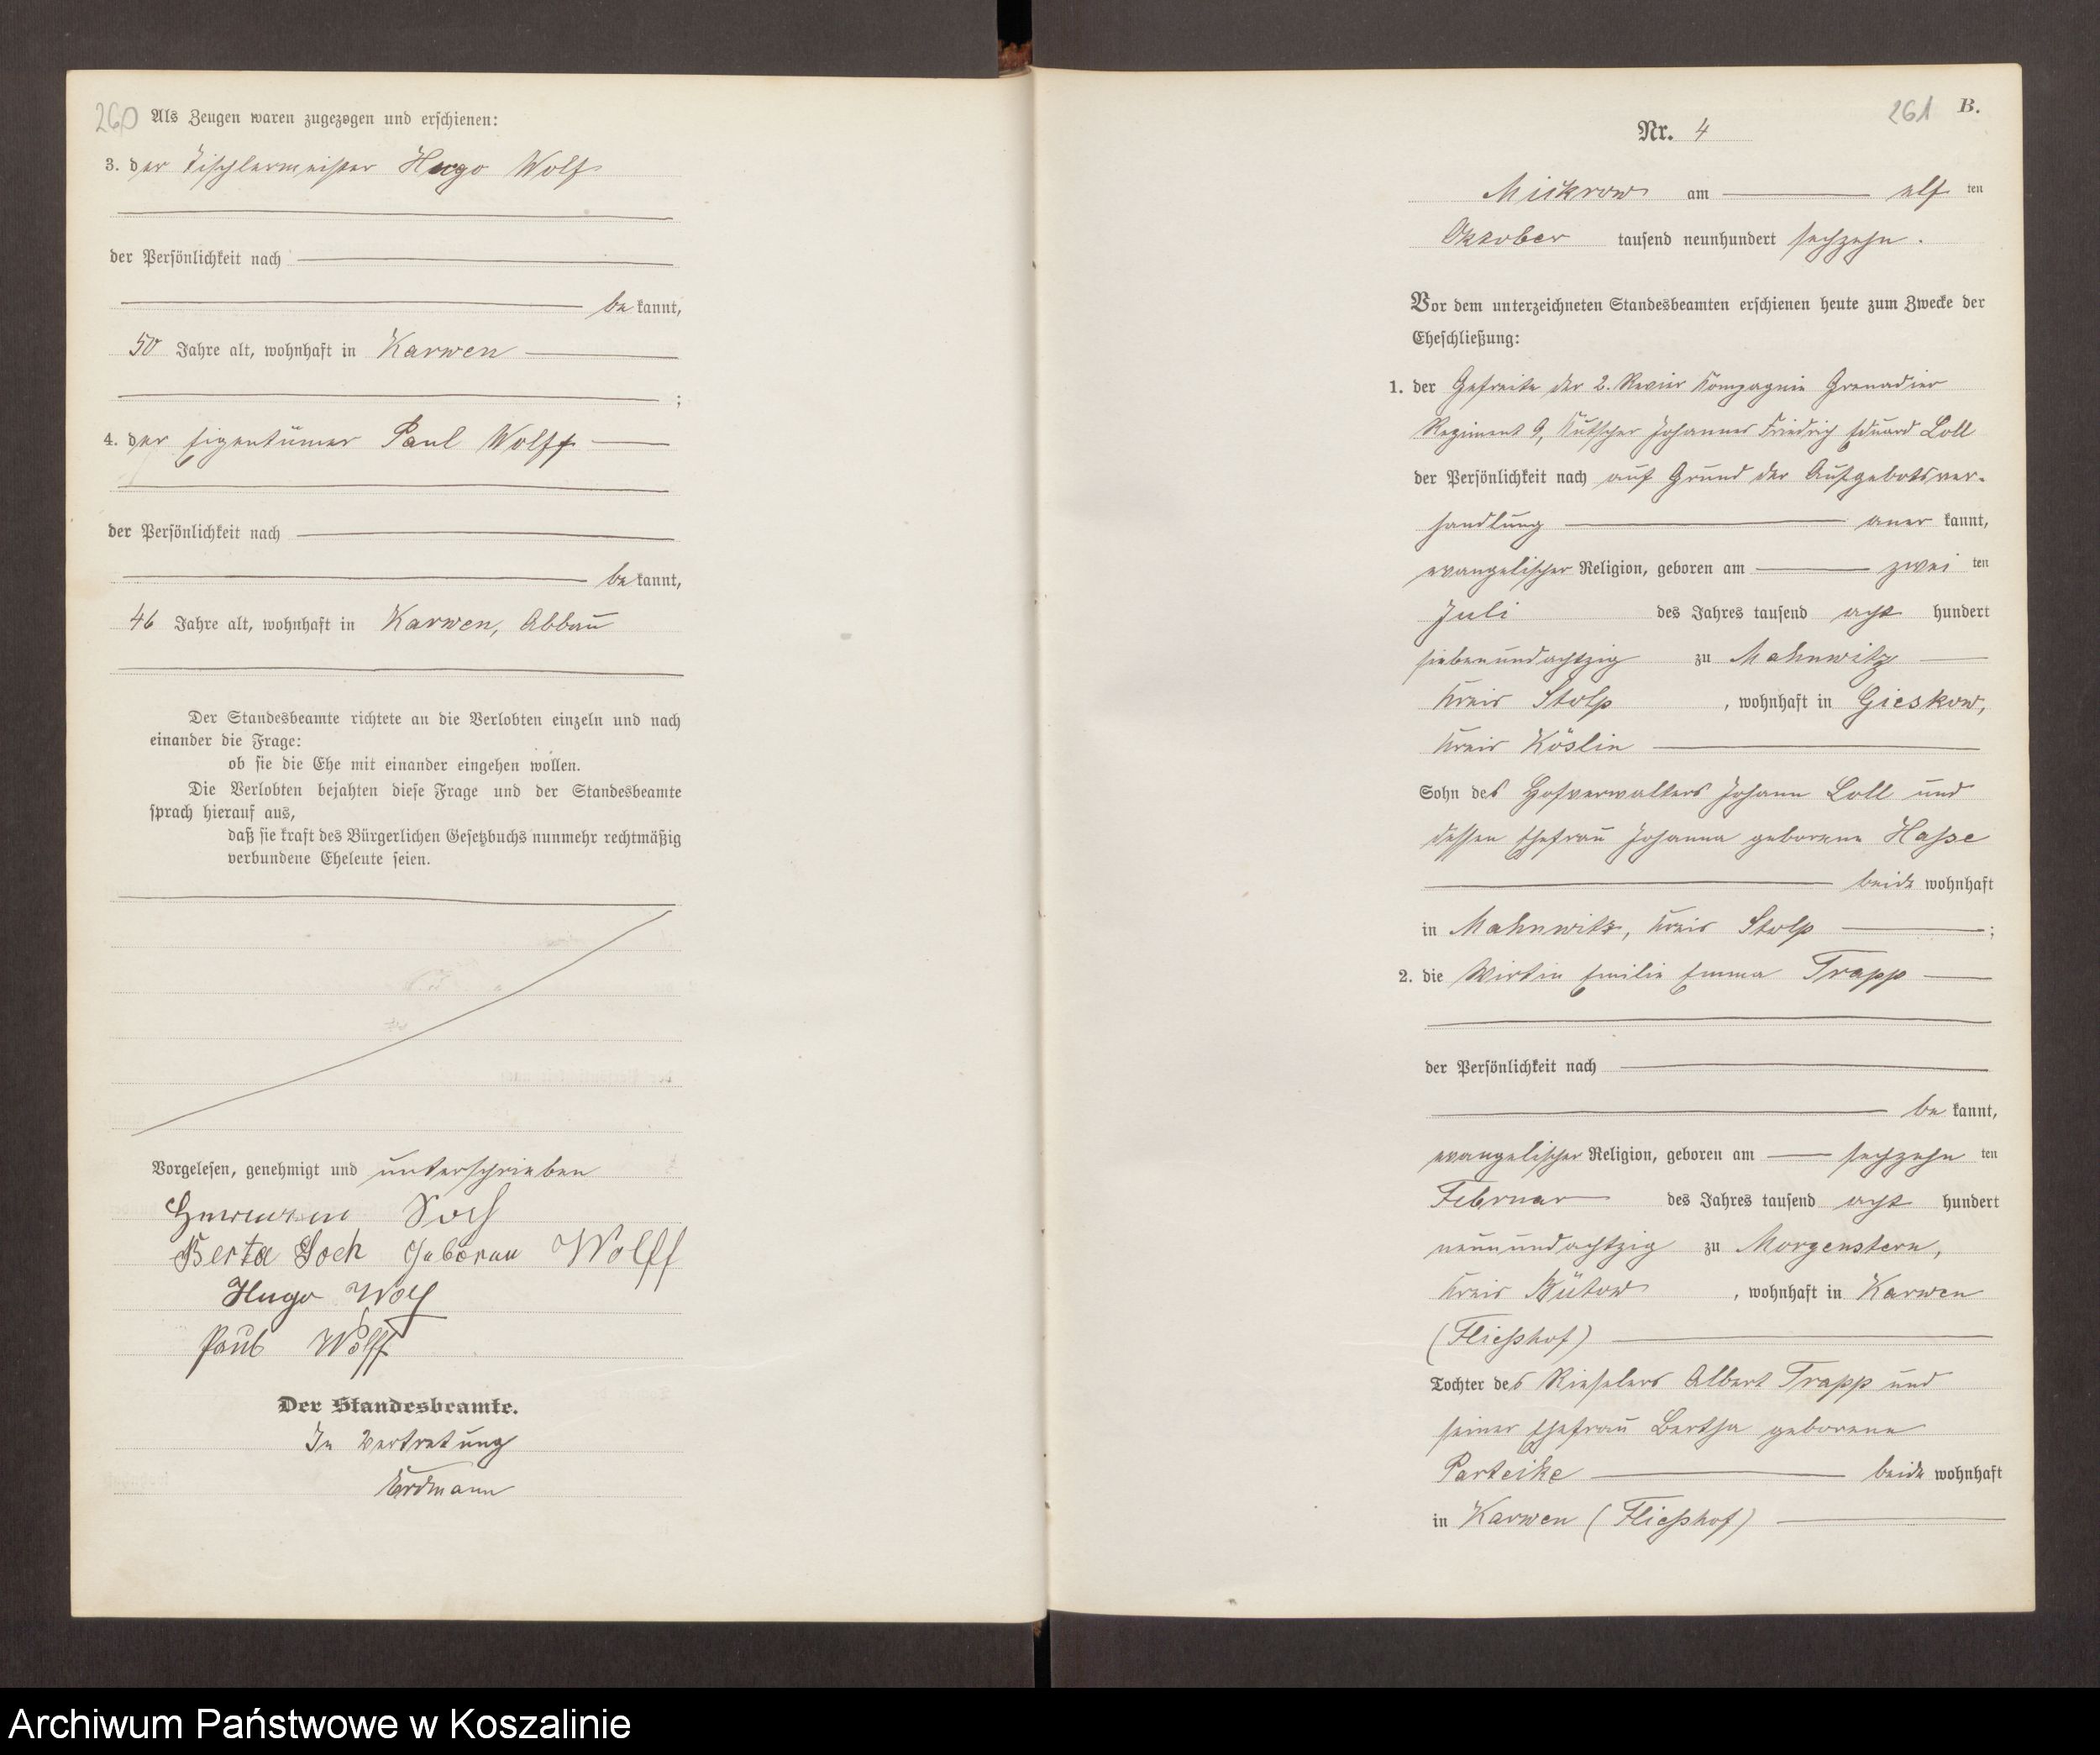 260
Als Zeugen waren zugezogen und erschienen:
3. der Tischlermeister Hugo Wolf
der Persönlichkeit nach
be kannt,
50 Jahre alt, wohnhaft in Karwen
;
4. der Eigentümer Paul Wolff
der Persönlichkeit nach
be kannt,
46 Jahre alt, wohnhaft in Karwen, Abbau
Der Standesbeamte richtete an die Verlobten einzeln und nach
einander die Frage:
ob sie die Ehe mit einander eingehen wollen.
Die Verlobten bejahten diese Frage und der Standesbeamte
sprach hierauf aus,
daß sie kraft des Bürgerlichen Gesetzbuchs nunmehr rechtmäßig
verbundene Eheleute seien.
Vorgelesen, genehmigt und unterschrieben
Berta Joch geborene Wolff
Hugo Wolf
Paul Wolff
Der Standesbeamte.
In Vertretung
Erdmann
261 B.
Nr. 4
Mickrow am elf ten
Oktober tausend neunhundert sechzehn.
Vor dem unterzeichneten Standesbeamten erschienen heute zum Zwecke der
Eheschließung:
1. der Gefreite der 2. Revier Kompagnie Grenadier
Regiment 9, Kutscher Johannes Friedrich Eduard Loll
der Persönlichkeit nach auf Grund der Aufgebotsver-
handlung aner kannt,
evangelischer Religion, geboren am zwei ten
Juli des Jahres tausend acht hundert
siebenundachtzig zu Mahnwitz
Kreis Stolp, wohnhaft in Gieskow,
Kreis Köslin
Sohn des Hofverwalters Johann Loll und
dessen Ehefrau Johanna geborene Hasse
beide wohnhaft
in Mahnwitz, Kreis Stolp ;
2. die Wirtin Emilie Emma Trapp
der Persönlichkeit nach
be kannt,
evangelischer Religion, geboren am sechzehn ten
Februar des Jahres tausend acht hundert
neunundachtzig zu Morgenstern,
Kreis Bütow, wohnhaft in Karwen
(Fliesshof)
Tochter des Rieselers Albert Trapp und
seiner Ehefrau Bertha geborene
Parteike beide wohnhaft
in Karwen (Fliesshof)
Archiwum Państwowe w Koszalinie